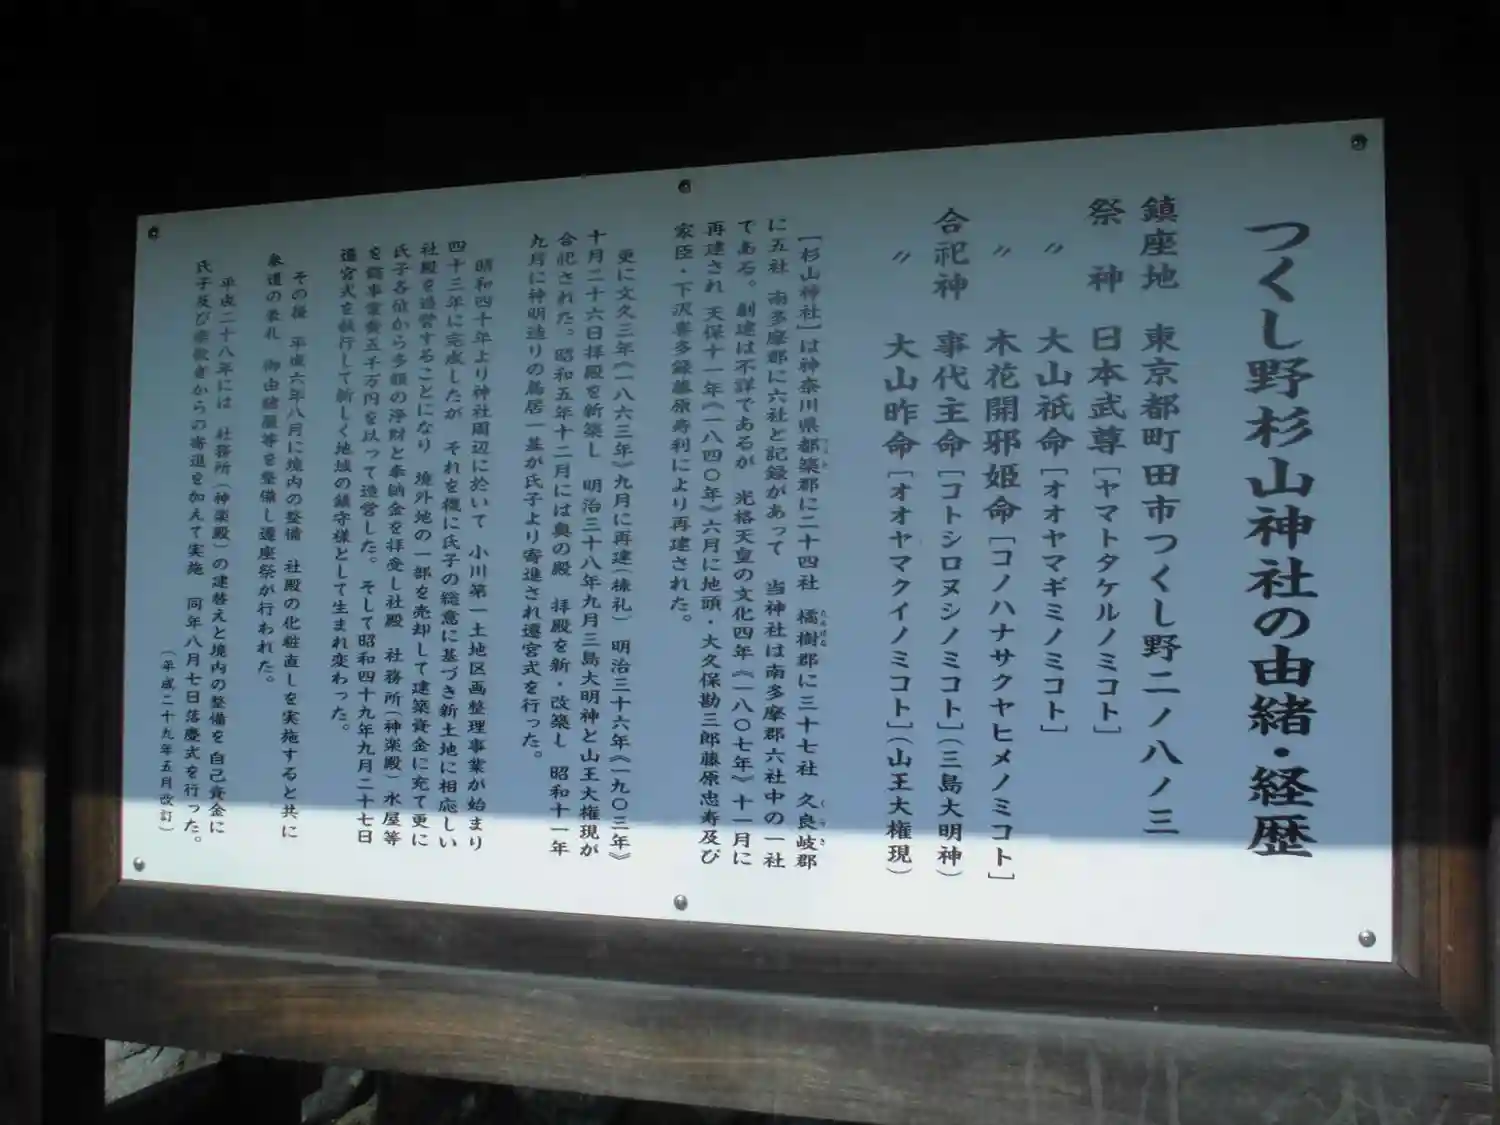 つくし野杉山神社の由緒・経歴
鎮座地 東京都町田市つくし野二ノ八ノ三
祭 神 日本武尊[ヤマトタケルノミコト]
〃 大山祇命[オオヤマギミノミコト]
〃 木花開邪姫命[コノハナサクヤヒメノミコト]
合祀神 事代主命[コトシロヌシノミコト](三島大明神)
〃 大山昨命[オオヤマクイノミコト](山王大権現)
[杉山神社]は神奈川県都築郡に二十四社 橘樹郡に三十七社 久良岐郡
に五社 南多摩郡に六社と記録があって 当神社は南多摩郡六社中の一社
である。創建は不詳であるが 光格天皇の文化四年《一八〇七年》十一月に
再建され 天保十一年《一八四〇年》六月に地頭・大久保勘三郎藤原忠寿及び
家臣・下沢喜多録藤原寿利により再建された。
更に文久三年《一八六三年》九月に再建(棟札) 明治三十六年《一九〇三年》
十月二十六日拝殿を新築し 明治三十八年九月三島大明神と山王大権現が
合祀された。昭和五年十二月には奥の殿 拝殿を新・改築し 昭和十一年
九月に神明造りの鳥居一基が氏子より寄進され遷宮式を行った。
昭和四十年より神社周辺に於いて 小川第一土地区画整理事業が始まり
四十三年に完成したが それを機に氏子の総意に基づき新土地に相応しい
社殿を造営することになり 境外地の一部を売却して建築資金に充て更に
氏子各位から多額の浄財と奉納金を拝受し社殿 社務所(神楽殿)水屋等
を総事業費五千万円を以って造営した。そして昭和四十九年九月二十七日
遷宮式を執行して新しく地域の鎮守様として生まれ変わった。
その後 平成六年八月に境内の整備 社殿の化粧直しを実施すると共に
参道の参札 御由緒版等を整備し遷座祭が行われた。
平成二十八年には 社務所(神楽殿)の建替えと境内の整備を 自己資金に
氏子及び崇敬者からの寄進を加えて実施 同年八月七日落慶式を行った。
(平成二十九年五月改訂)